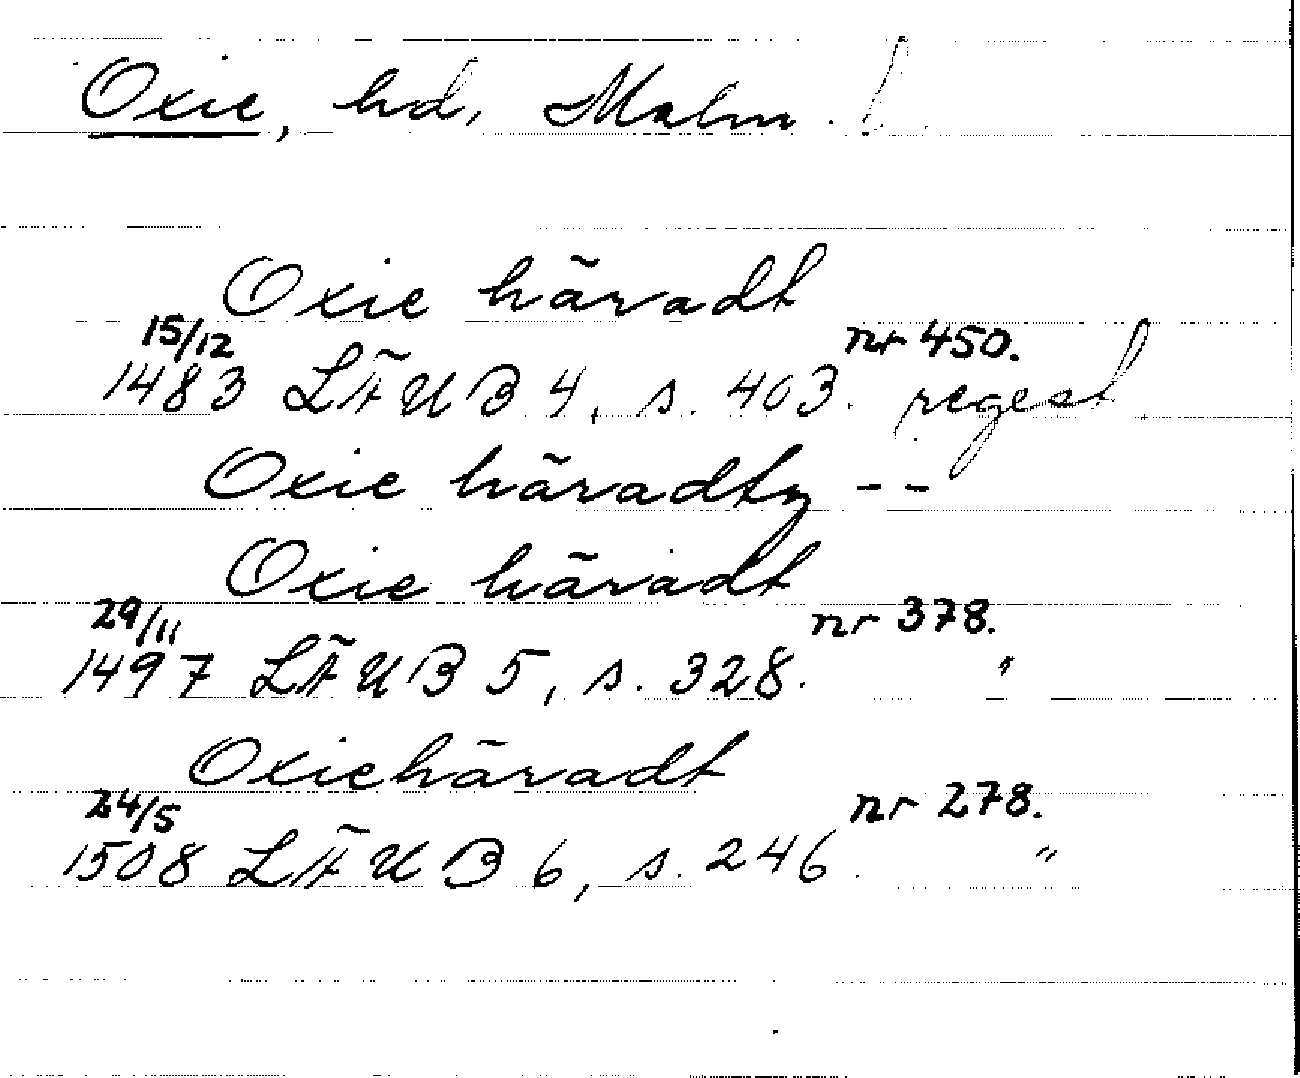 Oxie, hd, Malm. l
Oxie häradt
15/12 nr 450.
1483 LÄUB 4, s. 403. regest
Oxie häradtz --
Oxie häradt
29/11 nr 378.
1497 LÄUB 5, s. 328. "
Oxiehäradt
24/5 nr 278.
1508 LÄUB 6, s. 246. "